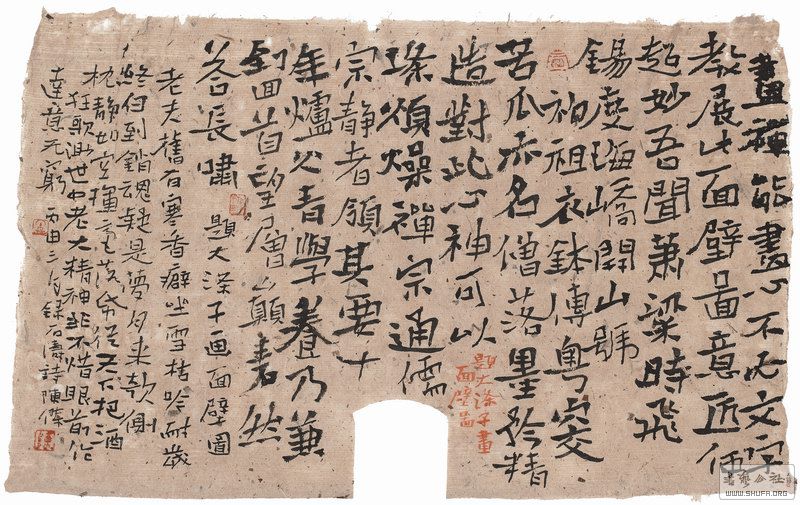 畫禪能畫心不必文字
教展此面壁啚意匠何
超妙吾聞蕭梁時飛
錫度海嶠開山號
初祖衣鉢傳粤
苦瓜亦名僧落墨矜精
造對此心神可以
躁禪宗通儒
宗静者領其要十
年爐火青學養乃兼
到回首望層巔蒼然
答長嘯
題大滌子画面壁圖
題大滌子畫
面壁啚
老夫舊有寒香癖坐雪枯吟耐歲
終行到銷魂疑是夢月来欹側
枕静如空揮毫落紙從天下把酒
狂歌此世中老大精神非不惜眼前作
達意无窮 丙申三月録石濤詩陳傑
書艺公社
WWW.SHUFA.ORG